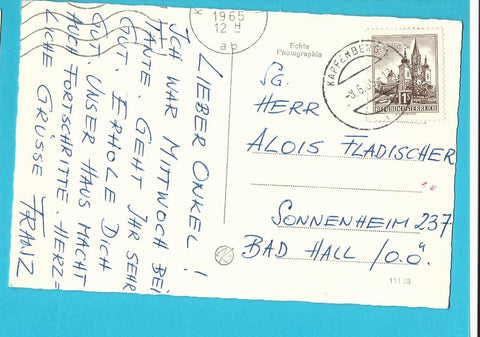 LIEBER ONKEL!
ICH WAR MITTWOCH BEI
TANTE. GEHT IHR SEHR
GUT. ERHOLE DICH
GUT. UNSER HAUS MACHT
AUCH FORTSCHRITTE. HERZ=
LICHE GRÜSSE FRANZ
1965
12 H
Echte
Photographie
KAPFENBERG
-8.6.
1S
REPUBLIK ÖSTERREICH
SG.
HERR
ALOIS FLADISCHER
SONNENHEIM 237
BAD HALL /O.Ö.
11173